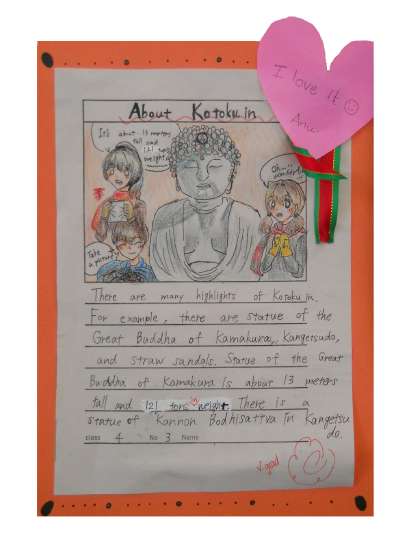 I love it
About Kotoku in
It's about 13 meters
tall and
121 tons
weight.
Oh...
wonderful!
Take
a picture!
There are many highlights of Kotoku in.
For example, there are statue of the
Great Buddha of Kamakura, Kangetsudo,
and straw sandals. Statue of the Great
Buddha of Kamakura is about 13 meters
tall and 121 tons weight. There is a
statue of Kannon Bodhisattva in Kangetsu
do.
class 4 No 3 Name
v.good